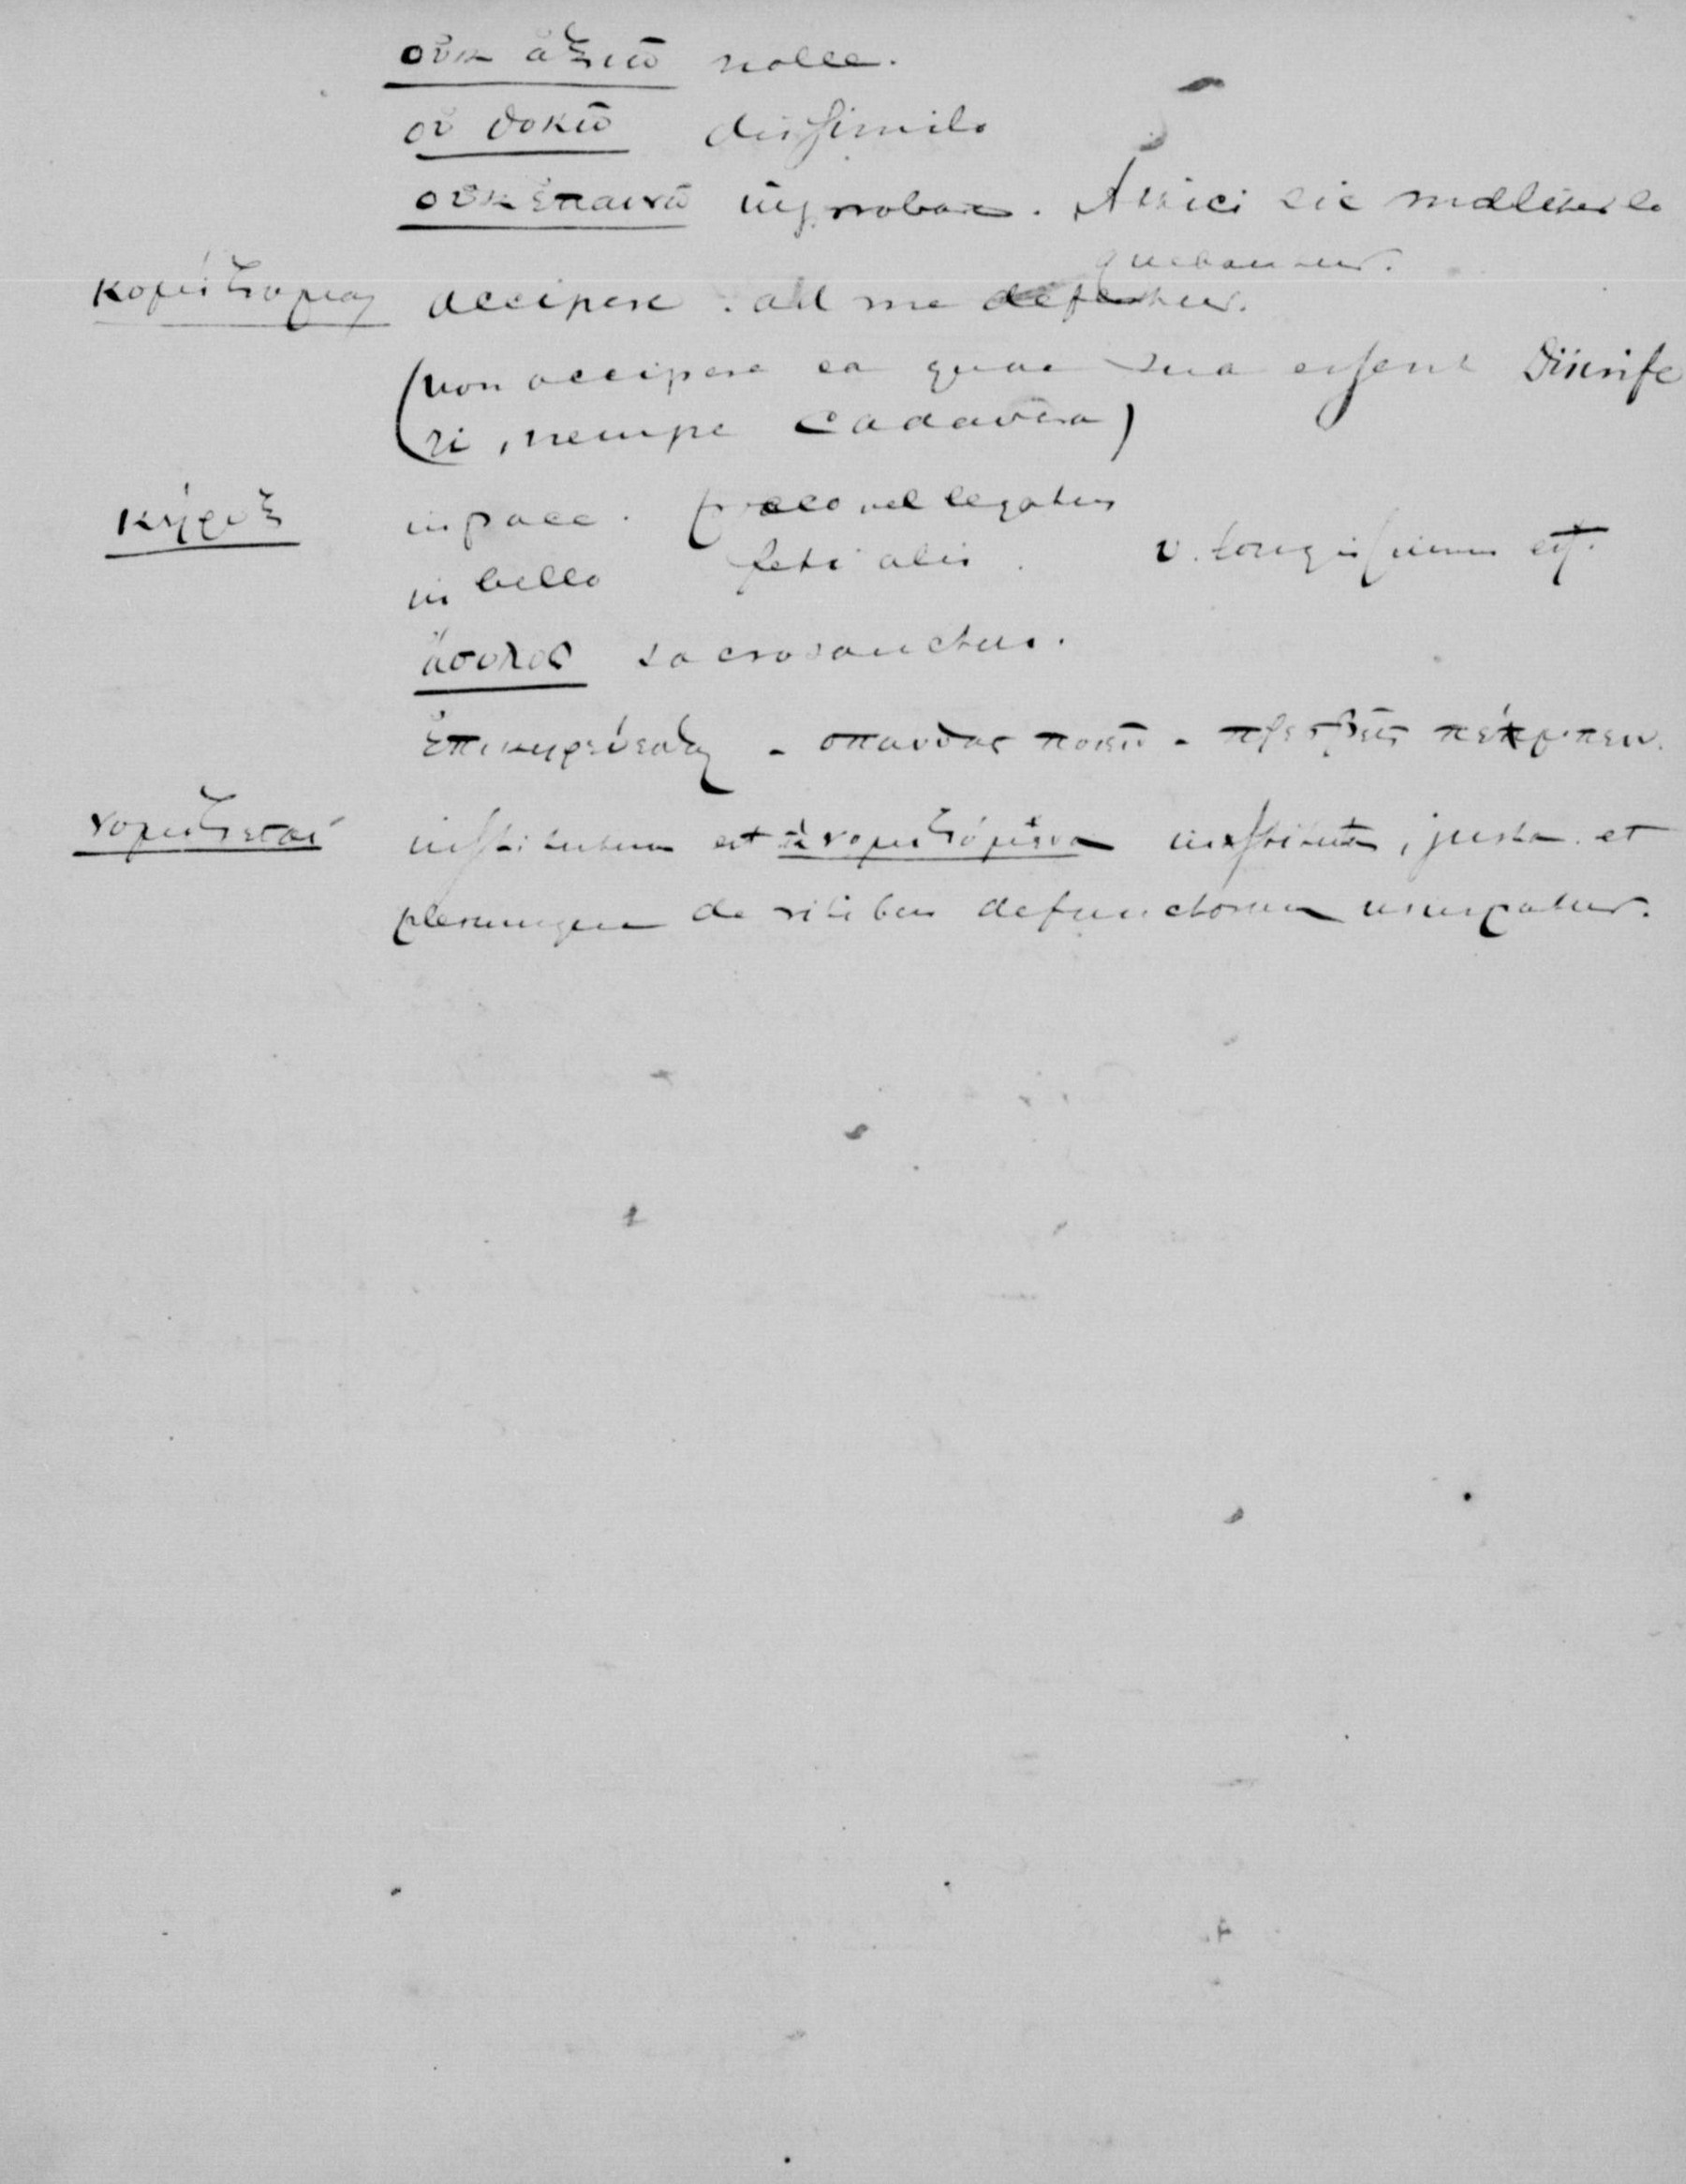 οὐκ ἀξιῶ nolle.
οὐ δοκῶ dissimilo
οὐκ ἐπαινῶ improbare. Attici sic molliter lo
quebantur.
κομίζομαι accipere. ad me defertur.
(non accipere ea quae sua essent Diis infe
ri, nempe cadavera)
κήρυξ in pace. praeco vel legatus
in bello fetialis. v. longissimum est.
ἄσυλος sacrosanctus.
ἐπικηρύεσθαι - σπονδας ποιεῖν - πρεσβεῖς πέμπειν.
νομίζεται institutum est τὰ νομιζόμενα instituta, justa et
plerumque de ritibus defunctorum usurpatur.